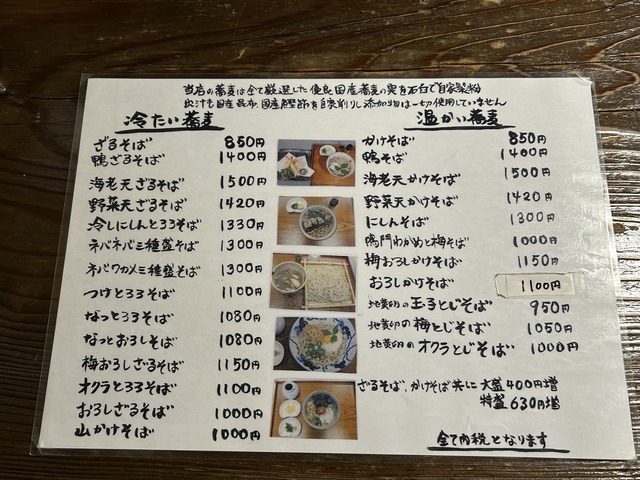 当店の蕎麦は全て厳選した優良国産蕎麦の実を石臼で自家製粉
出汁も国産昆布、国産鰹節を自家削りし添加物は一切使用していません
冷たい蕎麦
ざるそば 850円
鴨ざるそば 1400円
海老天ざるそば 1500円
野菜天ざるそば 1420円
冷しにしんとろろそば 1330円
ネバネバ三種盛そば 1300円
ネバワカメ三種盛そば 1300円
つけとろろそば 1100円
なっとろろそば 1080円
なっとおろしそば 1080円
梅おろしざるそば 1150円
オクラとろろそば 1100円
おろしざるそば 1000円
山かけそば 1000円
温かい蕎麦
かけそば 850円
鴨そば 1400円
海老天かけそば 1500円
野菜天かけそば 1420円
にしんそば 1300円
鳴門わかめと梅そば 1000円
梅おろしかけそば 1150円
おろしかけそば 1100円
地葉卵の玉子とじそば 950円
地葉卵の梅とじそば 1050円
地葉卵のオクラとじそば 1000円
ざるそば、かけそば共に 大盛400円増
特盛630円増
全て内税となります